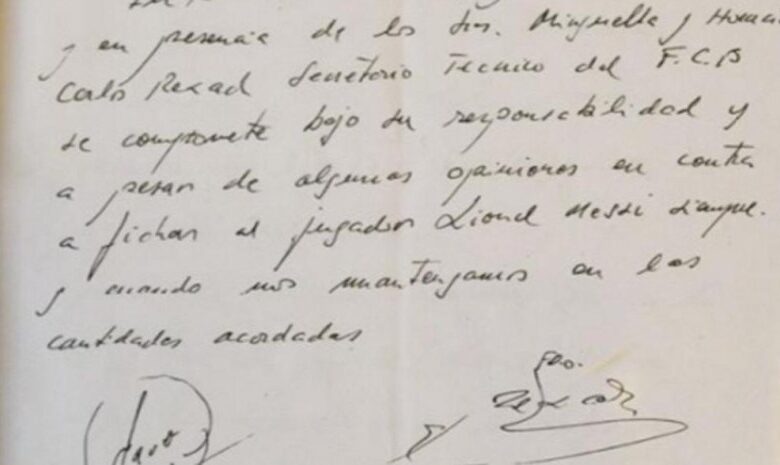 y en presencia de los Srs. Minguella y Horaci
Carlos Rexach Secretario Técnico del F.C.B
se compromete bajo su responsabilidad y
a pesar de algunas opiniones en contra
a fichar al jugador Lionel Messi siempre
y cuando nos mantengamos en las
cantidades acordadas
Fdo.